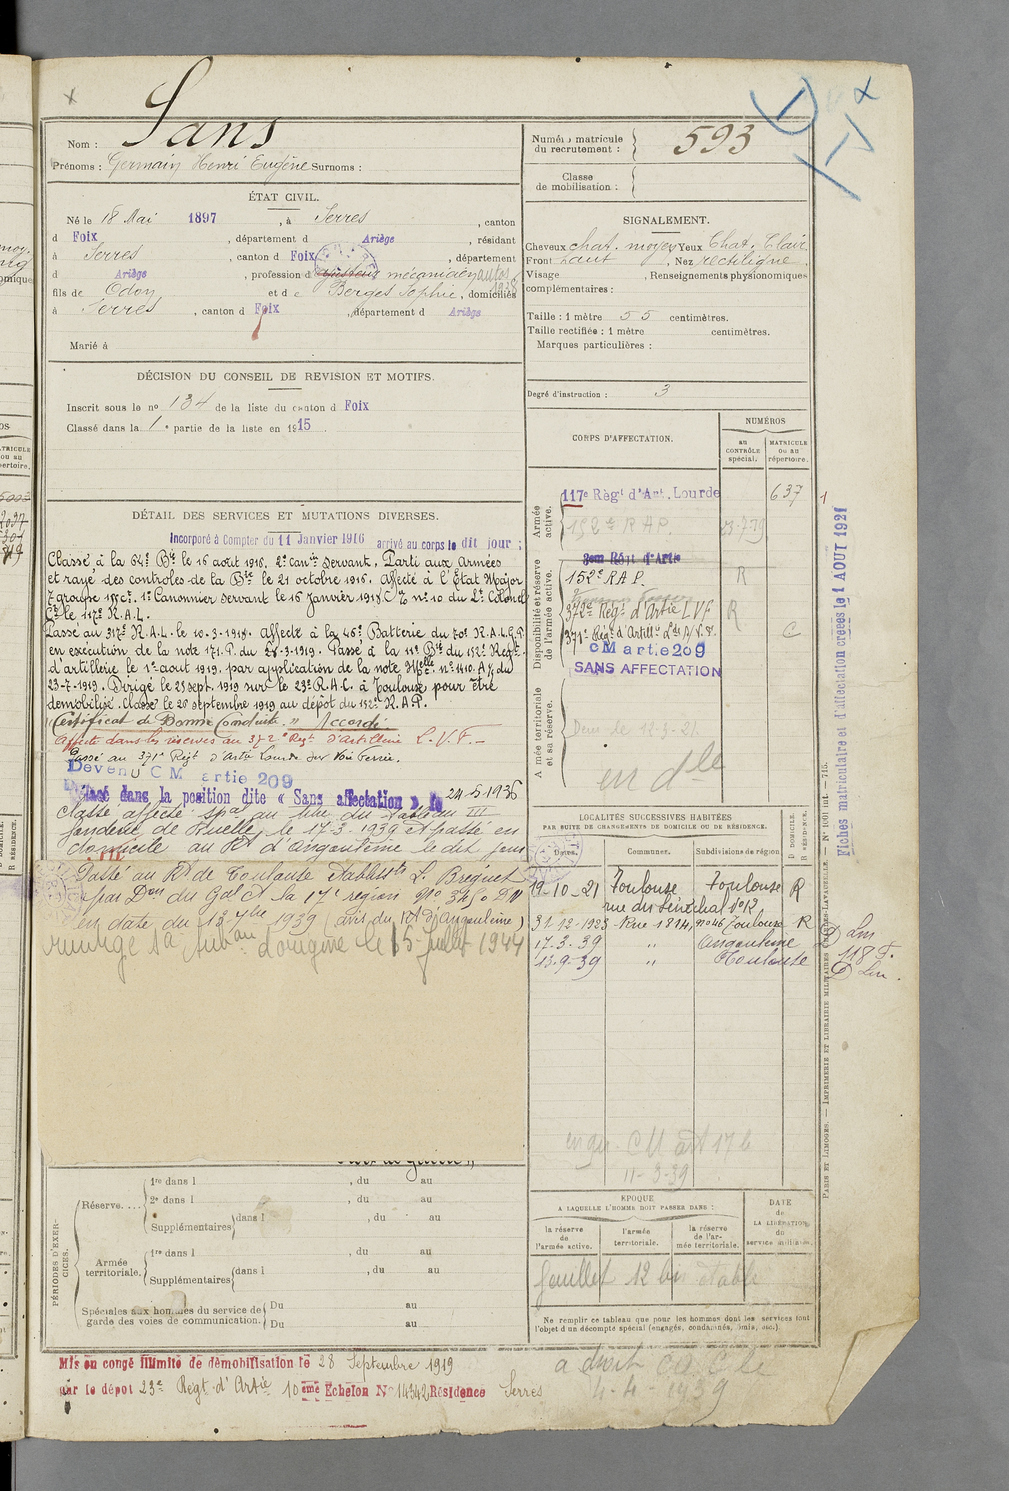 Sans
Nom :
Prénoms : Germain Henri Eugène Surnoms :
Numéro matricule
du recrutement :
593
Classe
de mobilisation :
ÉTAT CIVIL.
Né le 18 Mai 1897, à Serres, canton
d Foix, département d Ariège, résidant
à Serres, canton d Foix, département
d Ariège, profession d mécanicien autos
1938
fils de Odon et d e Berges Sophie, domiciliés
à Serres, canton d Foix, département d Ariège
Marié à
SIGNALEMENT.
Cheveux chat. moyen Yeux Chat. Clair
Front haut, Nez rectiligne.
Visage, Renseignements physionomiques
complémentaires :
Taille : 1 mètre 55 centimètres.
Taille rectifiée : 1 mètre centimètres.
Marques particulières :
Degré d'instruction : 3
DÉCISION DU CONSEIL DE REVISION ET MOTIFS.
Inscrit sous le no 134 de la liste du canton d Foix
Classé dans la 1e partie de la liste en 1915
DÉTAIL DES SERVICES ET MUTATIONS DIVERSES.
Incorporé à Compter du 11 Janvier 1916 arrivé au corps le dit jour ;
Classé à la 64e Bie le 16 août 1916, 2e Canier Servant. Parti aux Armées
et rayé des contrôles de la Bie le 21 octobre 1916. Affecté à l'Etat Major
7e groupe 155ct. 1er Canonnier servant le 16 Janvier 1918. no 10 du Lt Colonel
Ct le 117e R.A.L.
Passé au 317e R.A.L. le 10-3-1918. Affecté à la 46e Batterie du 70e R.A.L.G.P.
en exécution de la note 171.P. du 28-3-1919. Passé à la 11e Bie du 152e Regt.
d'artillerie le 1er août 1919, par application de la note Mlle no 1410. A/1 du
23-7-1919. Dirigé le 25 sept. 1919 sur le 23e R.A.C. à Toulouse pour être
démobilisé. Classé le 26 septembre 1919 au dépôt du 152e R.A.P.
Certificat de Bonne Conduite " Accordé
Affecté dans les réserves au 372e Regt d'artillerie L.V.F.-
Passé au 371e Régt d'Artie Lourde sur Voie Ferrée.
Devenu CM artie 209
Placé dans la position dite « Sans affectation » le 24-5-1936
Classé affecté spal au titre du tableau III
fonderie de Ruelle, le 17-3-1939 et passé en
domicile au Rt d'Angoulême le dit jour
Passé au Rt de Toulouse Etablissts L. Breguet
par Don du Gal Ct la 17e région No 3450 DN
en date du 13 7bre 1939 (avis du Rt d'Angoulême)
d'origine le 15 Juillet 1944
CORPS D'AFFECTATION.
NUMÉROS
AU
CONTRÔLE
spécial.
MATRICULE
ou au
répertoire.
Armée
active.
117e Régt d'Art. Lourde 637
152e R A P.
Disponibilité et réserve
de l'armée active.
152e R A P. R
372e Régt d'Artie L.V.F. R
371e Régt d'Artillie Lde s/ V. Fe. C
CM artie 209
SANS AFFECTATION
Armée territoriale
et sa réserve.
en dlle
LOCALITÉS SUCCESSIVES HABITÉES
PAR SUITE DE CHANGEMENTS DE DOMICILE OU DE RÉSIDENCE.
Dates. Communes. Subdivisions de région
D DOMICILE.
R RÉSIDENCE.
19-10-21 Toulouse Toulouse R
rue du Sénéchal No 12
31-12-1923 Rue 1814, no 46 Toulouse R
17-3-39 " Angoulême D
13-9-39 " Toulouse D
Lm
118 F.
Lm.
CM art 17 b
11-3-39
PÉRIODES D'EXERCICES.
Réserve....
1re dans l , du au
2e dans l , du au
Supplémentaires dans l , du au
Armée
territoriale.
1re dans l , du au
Supplémentaires dans l , du au
Spéciales aux hommes du service de
garde des voies de communication.
Du au
Du au
EPOQUE
A LAQUELLE L'HOMME DOIT PASSER DANS :
la réserve
de
l'armée active.
l'armée
territoriale.
la réserve
de l'ar-
mée territoriale.
DATE
de
LA LIBÉRATION
du
service militaire.
feuillet 12 bis établi
Ne remplir ce tableau que pour les hommes dont les services font
l'objet d'un décompte spécial (engagés, condamnés, omis, etc.).
Mis en congé illimité de démobilisation le 28 Septembre 1919
par le dépôt 23e Régt d'Artie 10ème Echelon No 14342 Résidence Serres
a droit
4-4-1939
Fiches matriculaire et d'affectation créées le 1 AOUT 1921
PARIS ET LIMOGES. — IMPRIMERIE ET LIBRAIRIE MILITAIRES CHARLES-LAVAUZELLE. — N° 1001 int. — 715.